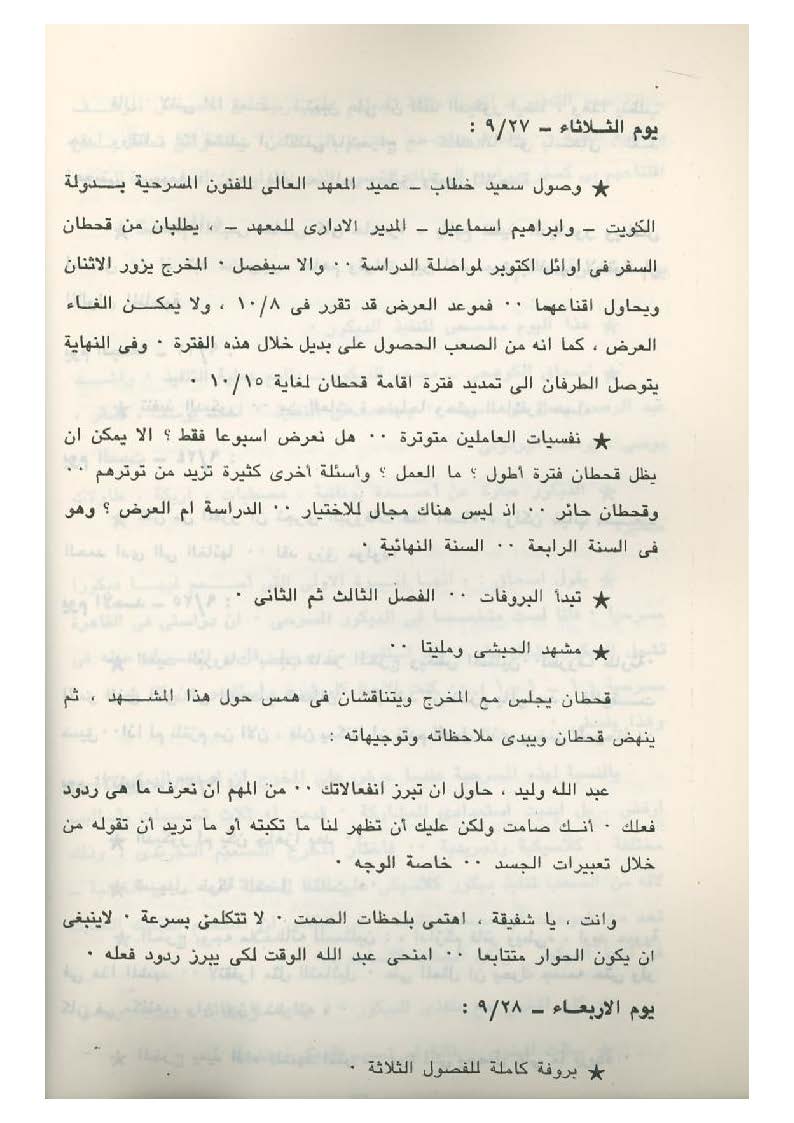 يوم الثـلاثاء – ٩/٢٧ :
★ وصول سعيد خطاب – عميد المعهد العالى للفنون المسرحية بـدولة
الكويت – وابراهيم اسماعيل – المدير الادارى للمعهد – ، يطلبان من قحطان
السفر فى اوائل اكتوبر لمواصلة الدراسة ٠٠ والا سيفصل ٠ المخرج يزور الاثنان
ويحاول اقناعهما ٠٠ فموعد العرض قد تقرر فى ١٠/٨ ، ولا يمكـن الغـاء
العرض ، كما انه من الصعب الحصول على بديل خلال هذه الفترة ٠ وفى النهاية
يتوصل الطرفان الى تمديد فترة اقامة قحطان لغاية ١٠/١٥ ٠
★ نفسيات العاملين متوترة ٠٠ هل نعرض اسبوعا فقط ؟ الا يمكن ان
يظل قحطان فترة أطول ؟ ما العمل ؟ وأسئلة أخرى كثيرة تزيد من توترهم ٠٠
وقحطان حائر ٠٠ اذ ليس هناك مجال للاختيار ٠٠ الدراسة ام العرض ؟ وهو
فى السنة الرابعة ٠٠ السنة النهائية ٠
★ تبدأ البروفات ٠٠ الفصل الثالث ثم الثانى ٠
★ مشهد الحبشى ومليتا ٠٠
قحطان يجلس مع المخرج ويتناقشان فى همس حول هذا المشـهد ، ثم
ينهض قحطان ويبدى ملاحظاته وتوجيهاته :
عبد الله وليد ، حاول ان تبرز انفعالاتك ٠٠ من المهم ان نعرف ما هى ردود
فعلك ٠ أنـك صامت ولكن عليك أن تظهر لنا ما تكبته أو ما تريد أن تقوله من
خلال تعبيرات الجسد ٠٠ خاصة الوجه ٠
وانت ، يا شفيقة ، اهتمى بلحظات الصمت ٠ لا تتكلمى بسرعة ٠ لاينبغى
ان يكون الحوار متتابعا ٠٠ امنحى عبد الله الوقت لكى يبرز ردود فعله ٠
يوم الاربعـاء – ٩/٢٨ :
★ بروفة كاملة للفصول الثلاثة ٠